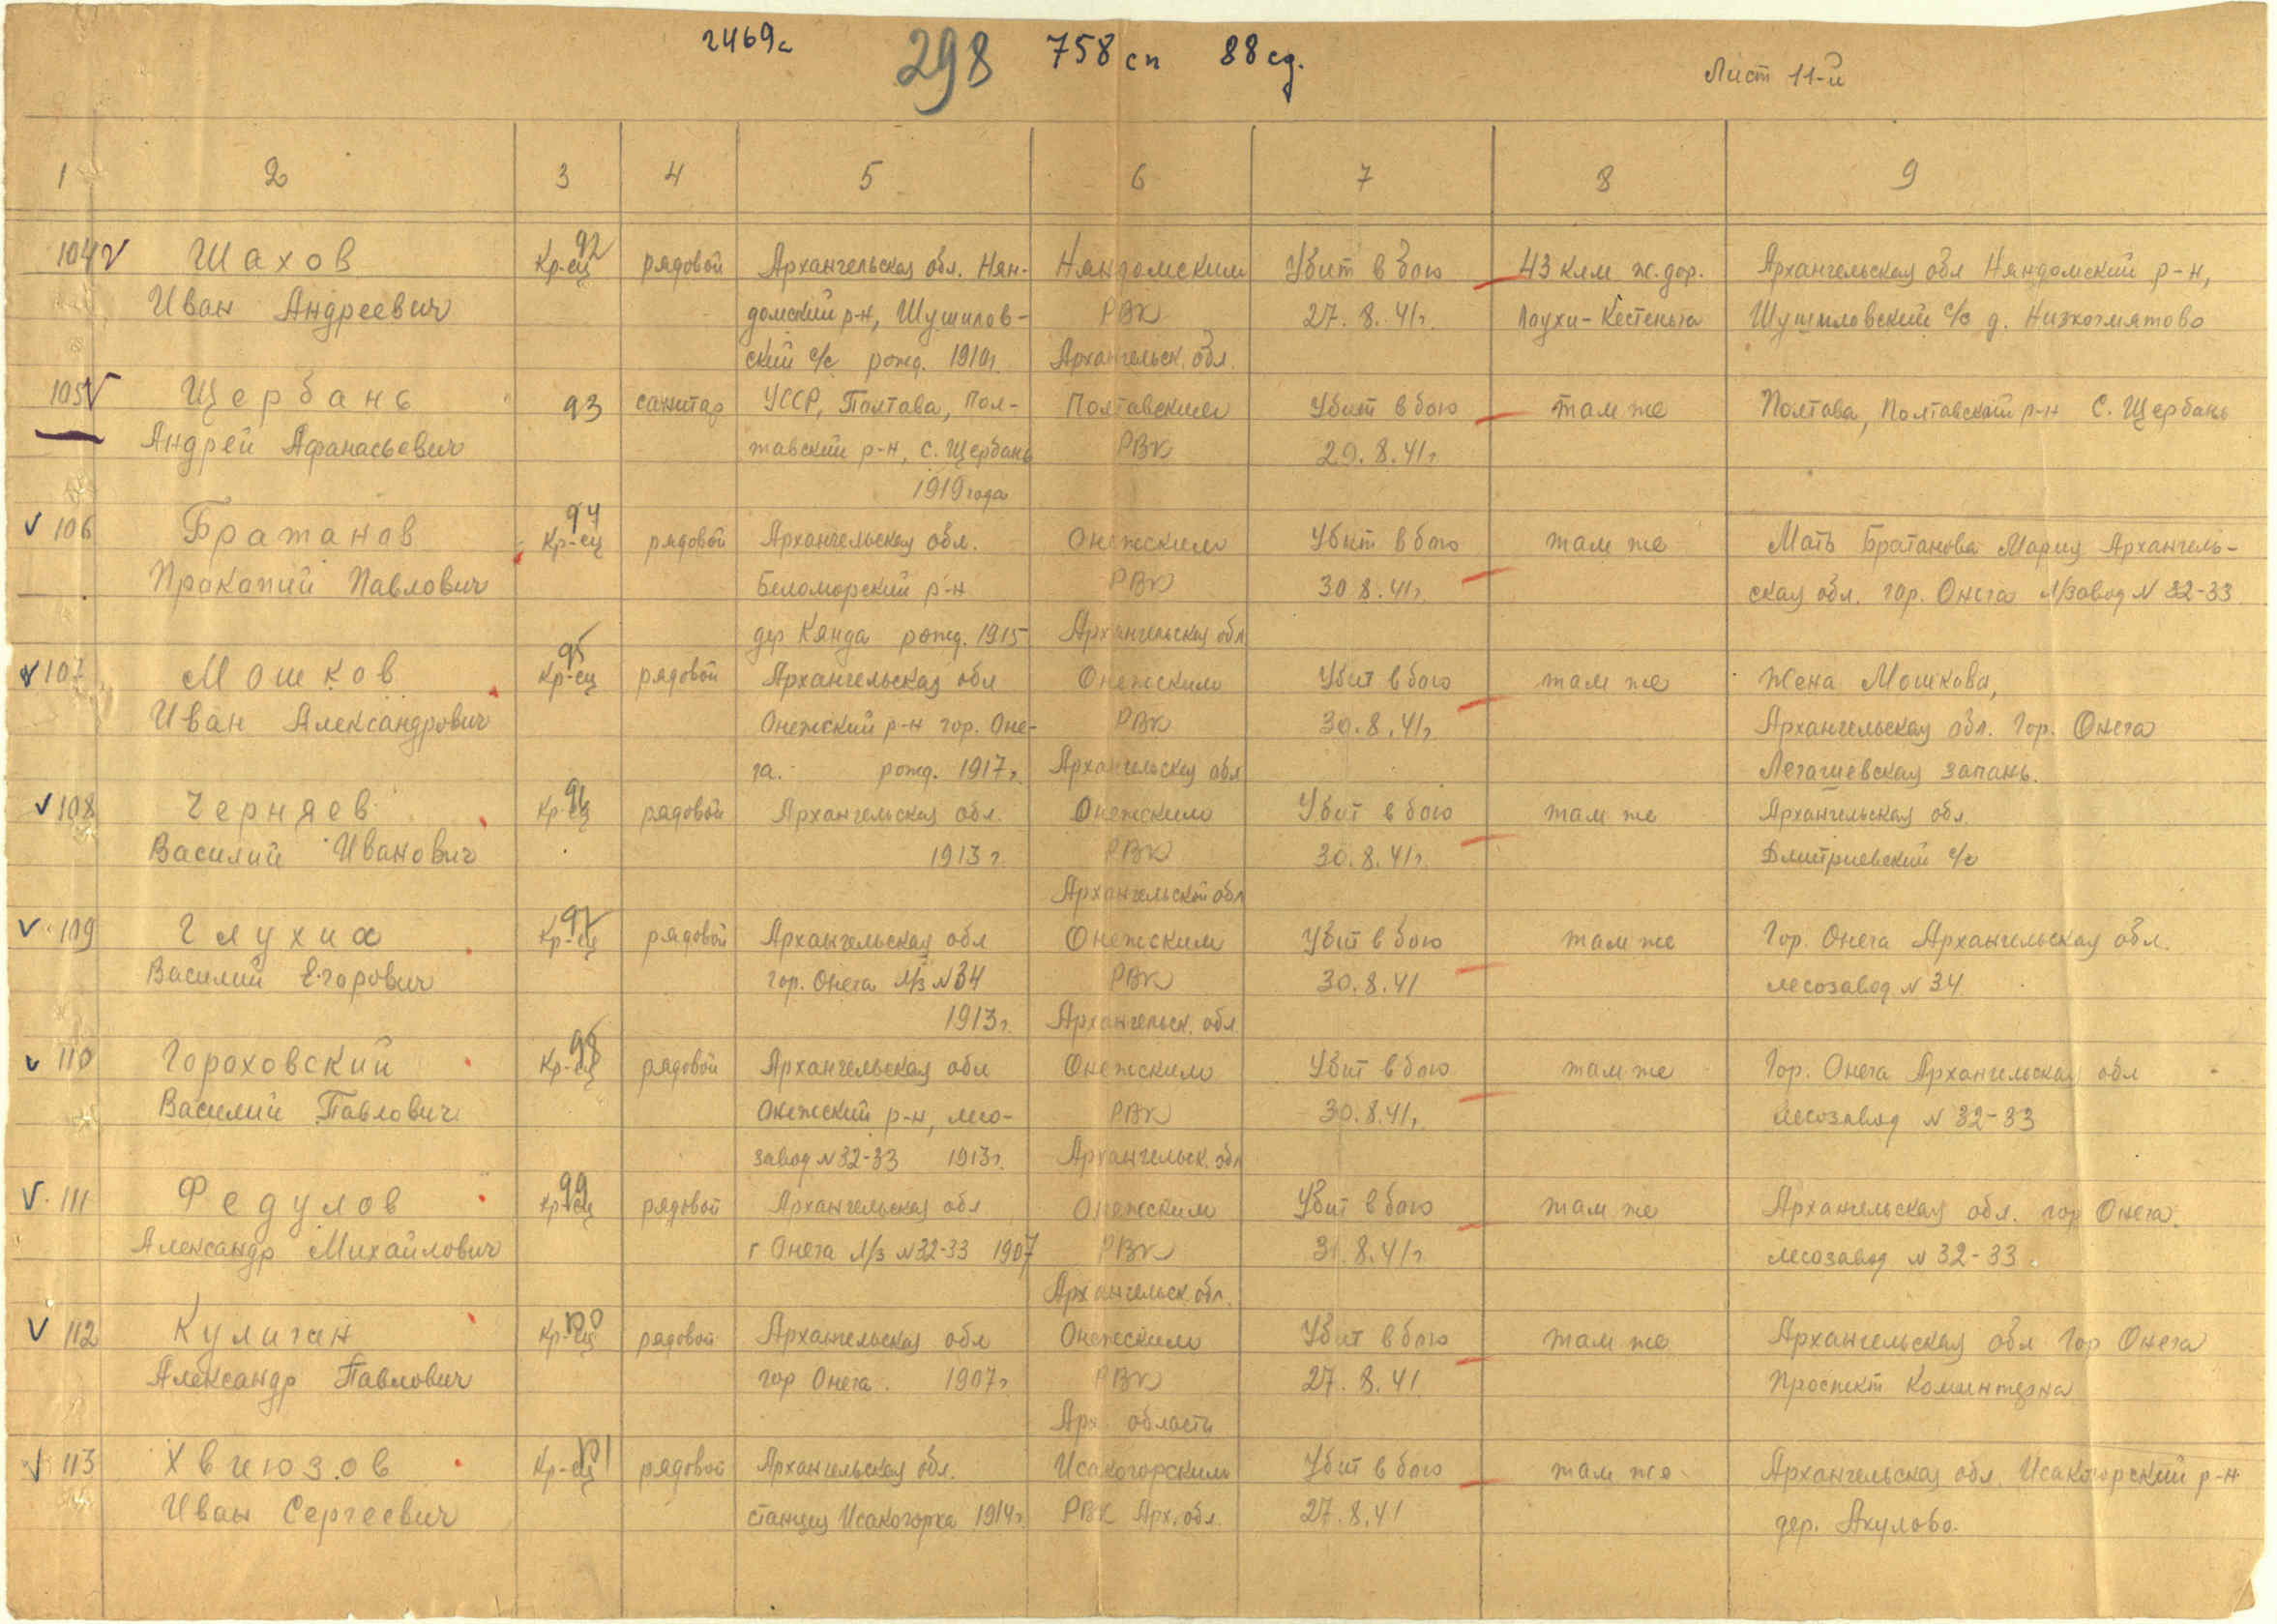 2469с 298 758 сп 88 сд. Лист 11-й
1 2 3 4 5 6 7 8 9
104 Шахов Кр-ец 92 рядовой Архангельская обл. Нян- Няндомским Убит в бою 43 клм ж. дор. Архангельская обл Няндомский р-н,
Иван Андреевич домский р-н, Шушилов- РВК 27. 8. 41г. Лоухи-Кестеньга Шушиловский с/с д.
ский с/с рожд. 1910г. Архангельск. обл.
105 Щербань 93 санитар УССР, Полтава, Пол- Полтавским Убит в бою там же Полтава, Полтавский р-н С. Щербань
Андрей Афанасьевич тавский р-н, с. Щербань РВК 29. 8. 41г
1919 года
106 Братанов Кр-ец 94 рядовой Архангельская обл. Онежским Убит в бою там же Мать Братанова Мария Архангель-
Пракапий Павлович Беломорский р-н РВК 30 8. 41г. ская обл. гор. Онега Л/завод N 32-33
дер Кянда рожд. 1915 Архангельская обл
107 Мошков Кр-ец 95 рядовой Архангельская обл Онежским Убит в бою там же Жена Мошкова,
Иван Александрович Онежский р-н гор. Оне- РВК 30. 8. 41г Архангельская обл. Гор. Онега
га. рожд. 1917г. Архангельская обл запань.
108 Черняев Кр-ец 96 рядовой Архангельская обл. Онежским Убит в бою там же Архангельская обл.
Василий Иванович 1913 г РВК 30. 8. 41г. Дмитриевский с/с
Архангельской обл
109 Глухих Кр-ец 97 рядовой Архангельская обл Онежским Убит в бою там же Гор. Онега Архангельская обл.
Василий Егорович гор. Онега Л/з N 34 РВК 30. 8. 41 лесозавод N 34
1913г. Архангельск. обл
110 Гороховский Кр-ец 98 рядовой Архангельская обл Онежским Убит в бою там же Гор. Онега Архангельская обл
Василий Павлович Онежский р-н, лесо- РВК 30. 8. 41г лесозавод N 32-33
завод N 32-33 1913г. Архангельск. обл
111 Федулов Кр-ец 99 рядовой Архангельская обл Онежским Убит в бою там же Архангельская обл. гор Онега.
Александр Михайлович г Онега Л/з N 32-33 1907 РВК 31. 8. 41г лесозавод N 32-33.
Архангельск обл.
112 Кулиган Кр-ец 100 рядовой Архангельская обл Онежским Убит в бою там же Архангельская обл Гор Онега
Александр Павлович гор Онега. 1907г РВК 27. 8. 41 Проспект Коминтерна
Арх. область
113 Хвиюзов Кр-ец 101 рядовой Архангельская обл. Исакогорским Убит в бою там же Архангельская обл. Исакогорский р-н
Иван Сергеевич станция Исакогорка 1914г РВК Арх. обл. 27. 8. 41 дер. Акулово.